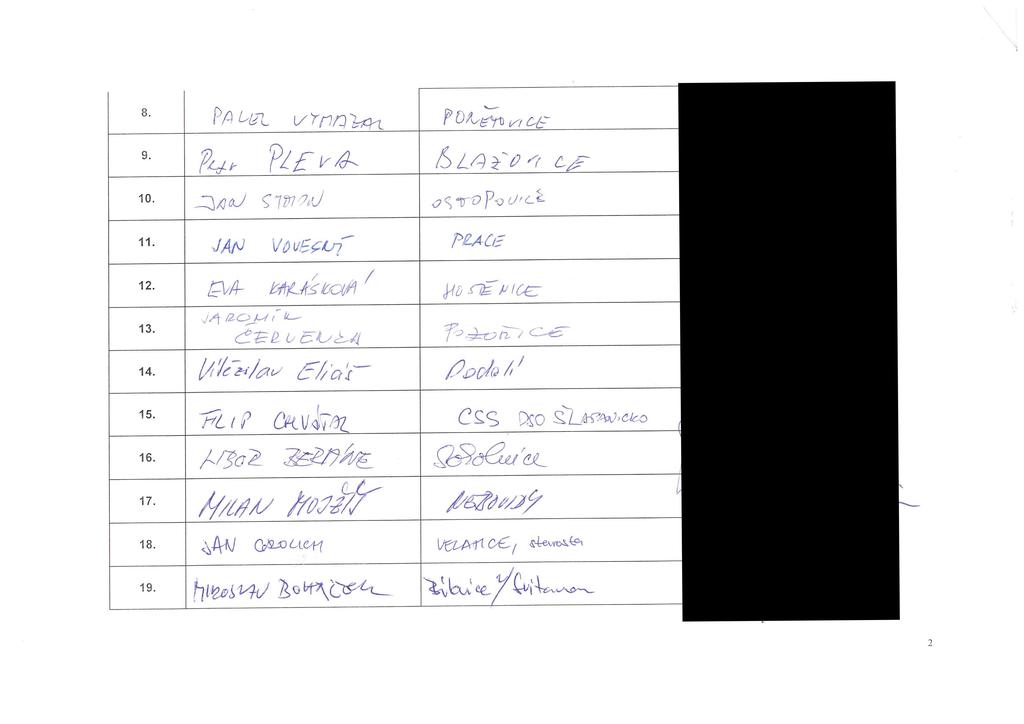 8. PAVEL VYMAZAL PONĚTOVICE
9. Petr PLEVA BLAŽOVICE
10. JAN SIMON OSTOPOVICE
11. JAN VOVESNÝ PRACE
12. EVA KARÁSKOVÁ HOSTĚNICE
13. JAROMÍR ČERVENKA POZOŘICE
14. Vítězslav Eliáš Podolí
15. FILIP CHVÁTAL CSS DSO ŠLAPANICKO
16. LIBOR BERÁNE Sokolnice
17. MILAN MOJŽÍŠ NEBOVIDY
18. JAN GROLICH VELATICE, starosta
19. MIROSLAV BOHÁČEK
2